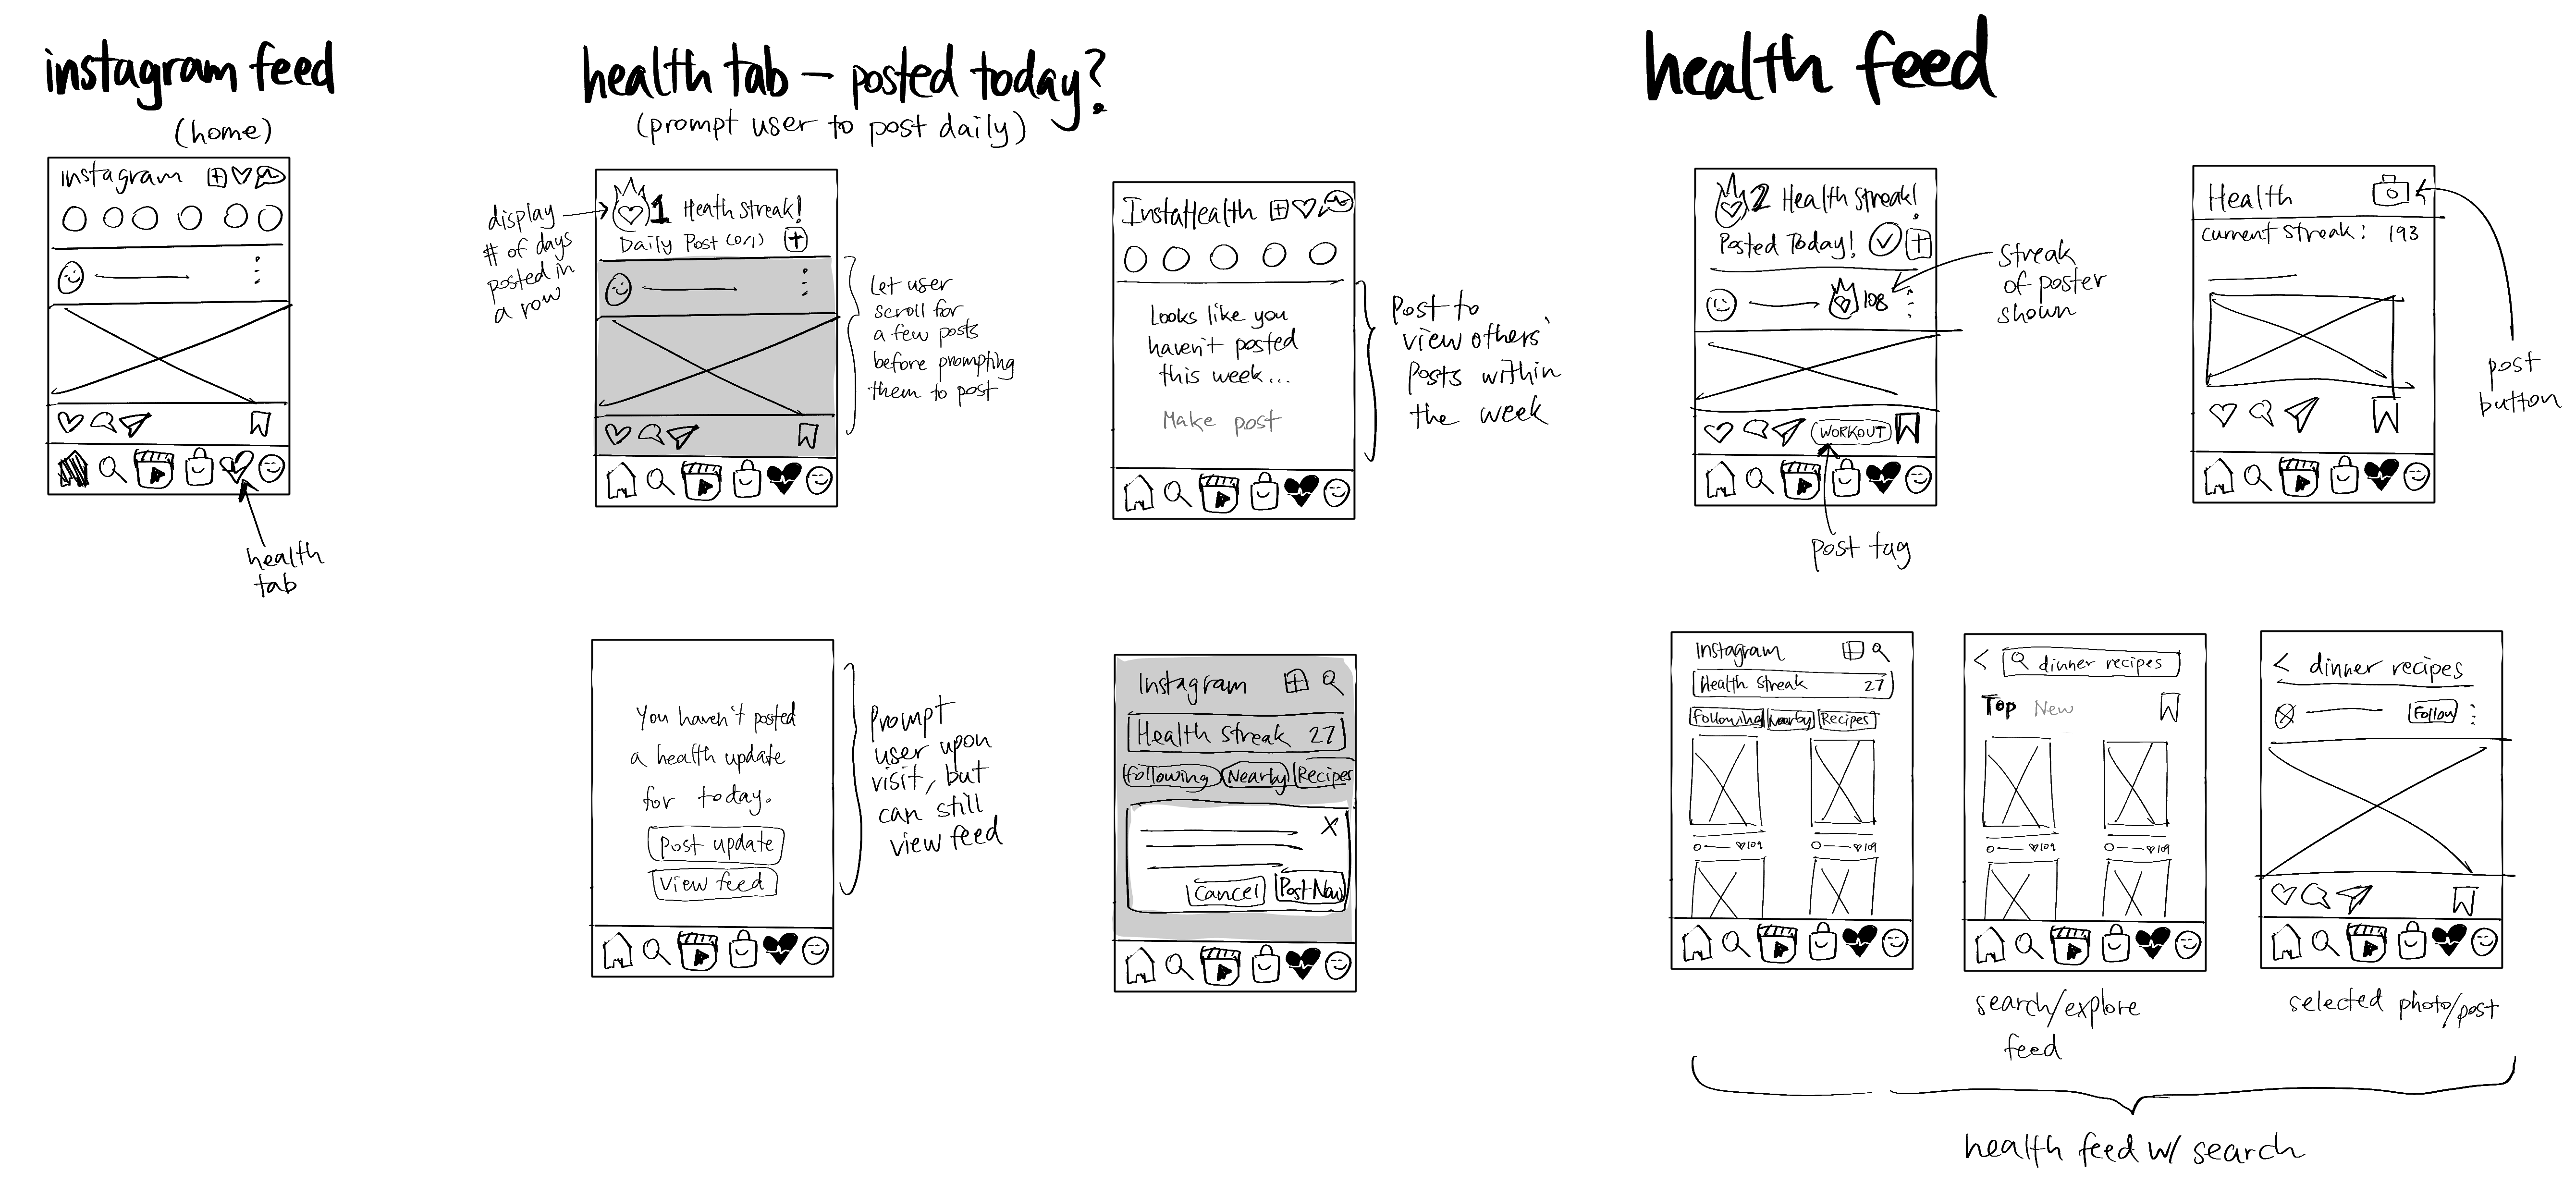 instagram feed
(home)
Instagram
health
tab
health tab – posted today?
(prompt user to post daily)
display
# of days
posted in
a row
1 Heath Streak!
Daily Post (0/1)
Let user
scroll for
a few posts
before prompting
them to post
InstaHealth
Looks like you
haven't posted
this week...
Make post
Post to
view others'
posts within
the week
You haven't posted
a health update
for today.
Post update
View feed
Prompt
user upon
visit, but
can still
view feed
Instagram
Health Streak 27
Following Nearby Recipes
X
Cancel Post Now
health feed
2 Health Streak!
Posted Today!
108
WORKOUT
Streak
of poster
shown
post tag
Health
Current Streak: 193
post
button
Instagram
Health Streak 27
Following Nearby Recipes
109 109
< dinner recipes
Top New
109 109
search/explore
feed
< dinner recipes
Follow
selected photo/post
health feed w/ search